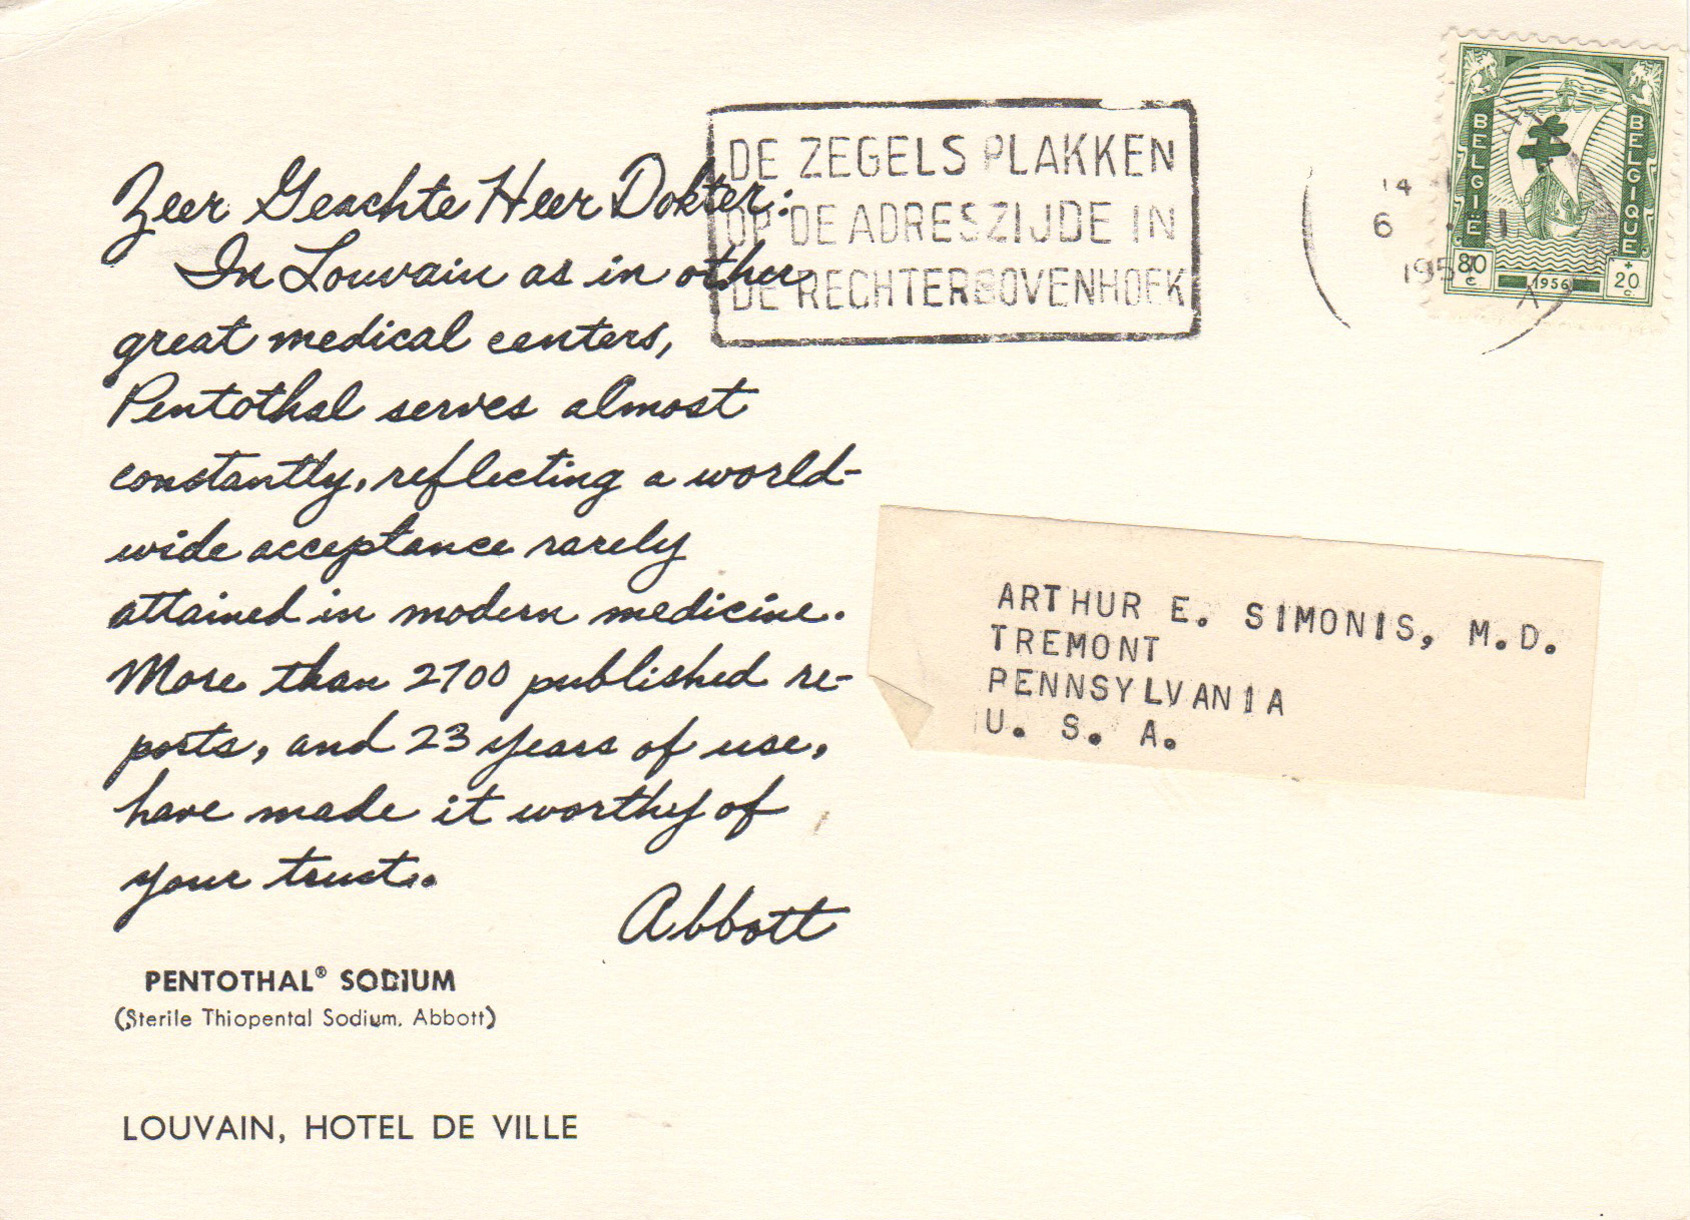 Zeer Geachte Heer Dokter:
In Louvain as in other
great medical centers,
Pentothal serves almost
constantly, reflecting a world-
wide acceptance rarely
attained in modern medicine.
More than 2700 published re-
ports, and 23 years of use,
have made it worthy of
your trust.
Abbott
PENTOTHAL® SODIUM
(Sterile Thiopental Sodium, Abbott)
LOUVAIN, HOTEL DE VILLE
DE ZEGELS PLAKKEN
OP DE ADRESZIJDE IN
DE RECHTERBOVENHOEK
14
6 11
195
BELGIË
BELGIQUE
80 c
1956
+ 20 c
ARTHUR E. SIMONIS, M.D.
TREMONT
PENNSYLVANIA
U. S. A.